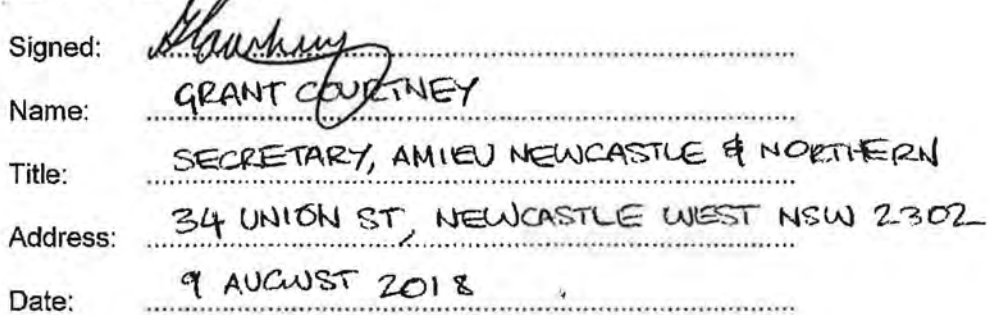 Signed:
Name: GRANT COURTNEY
Title: SECRETARY, AMIEU NEWCASTLE & NORTHERN
Address: 34 UNION ST, NEWCASTLE WEST NSW 2302
Date: 9 AUGUST 2018